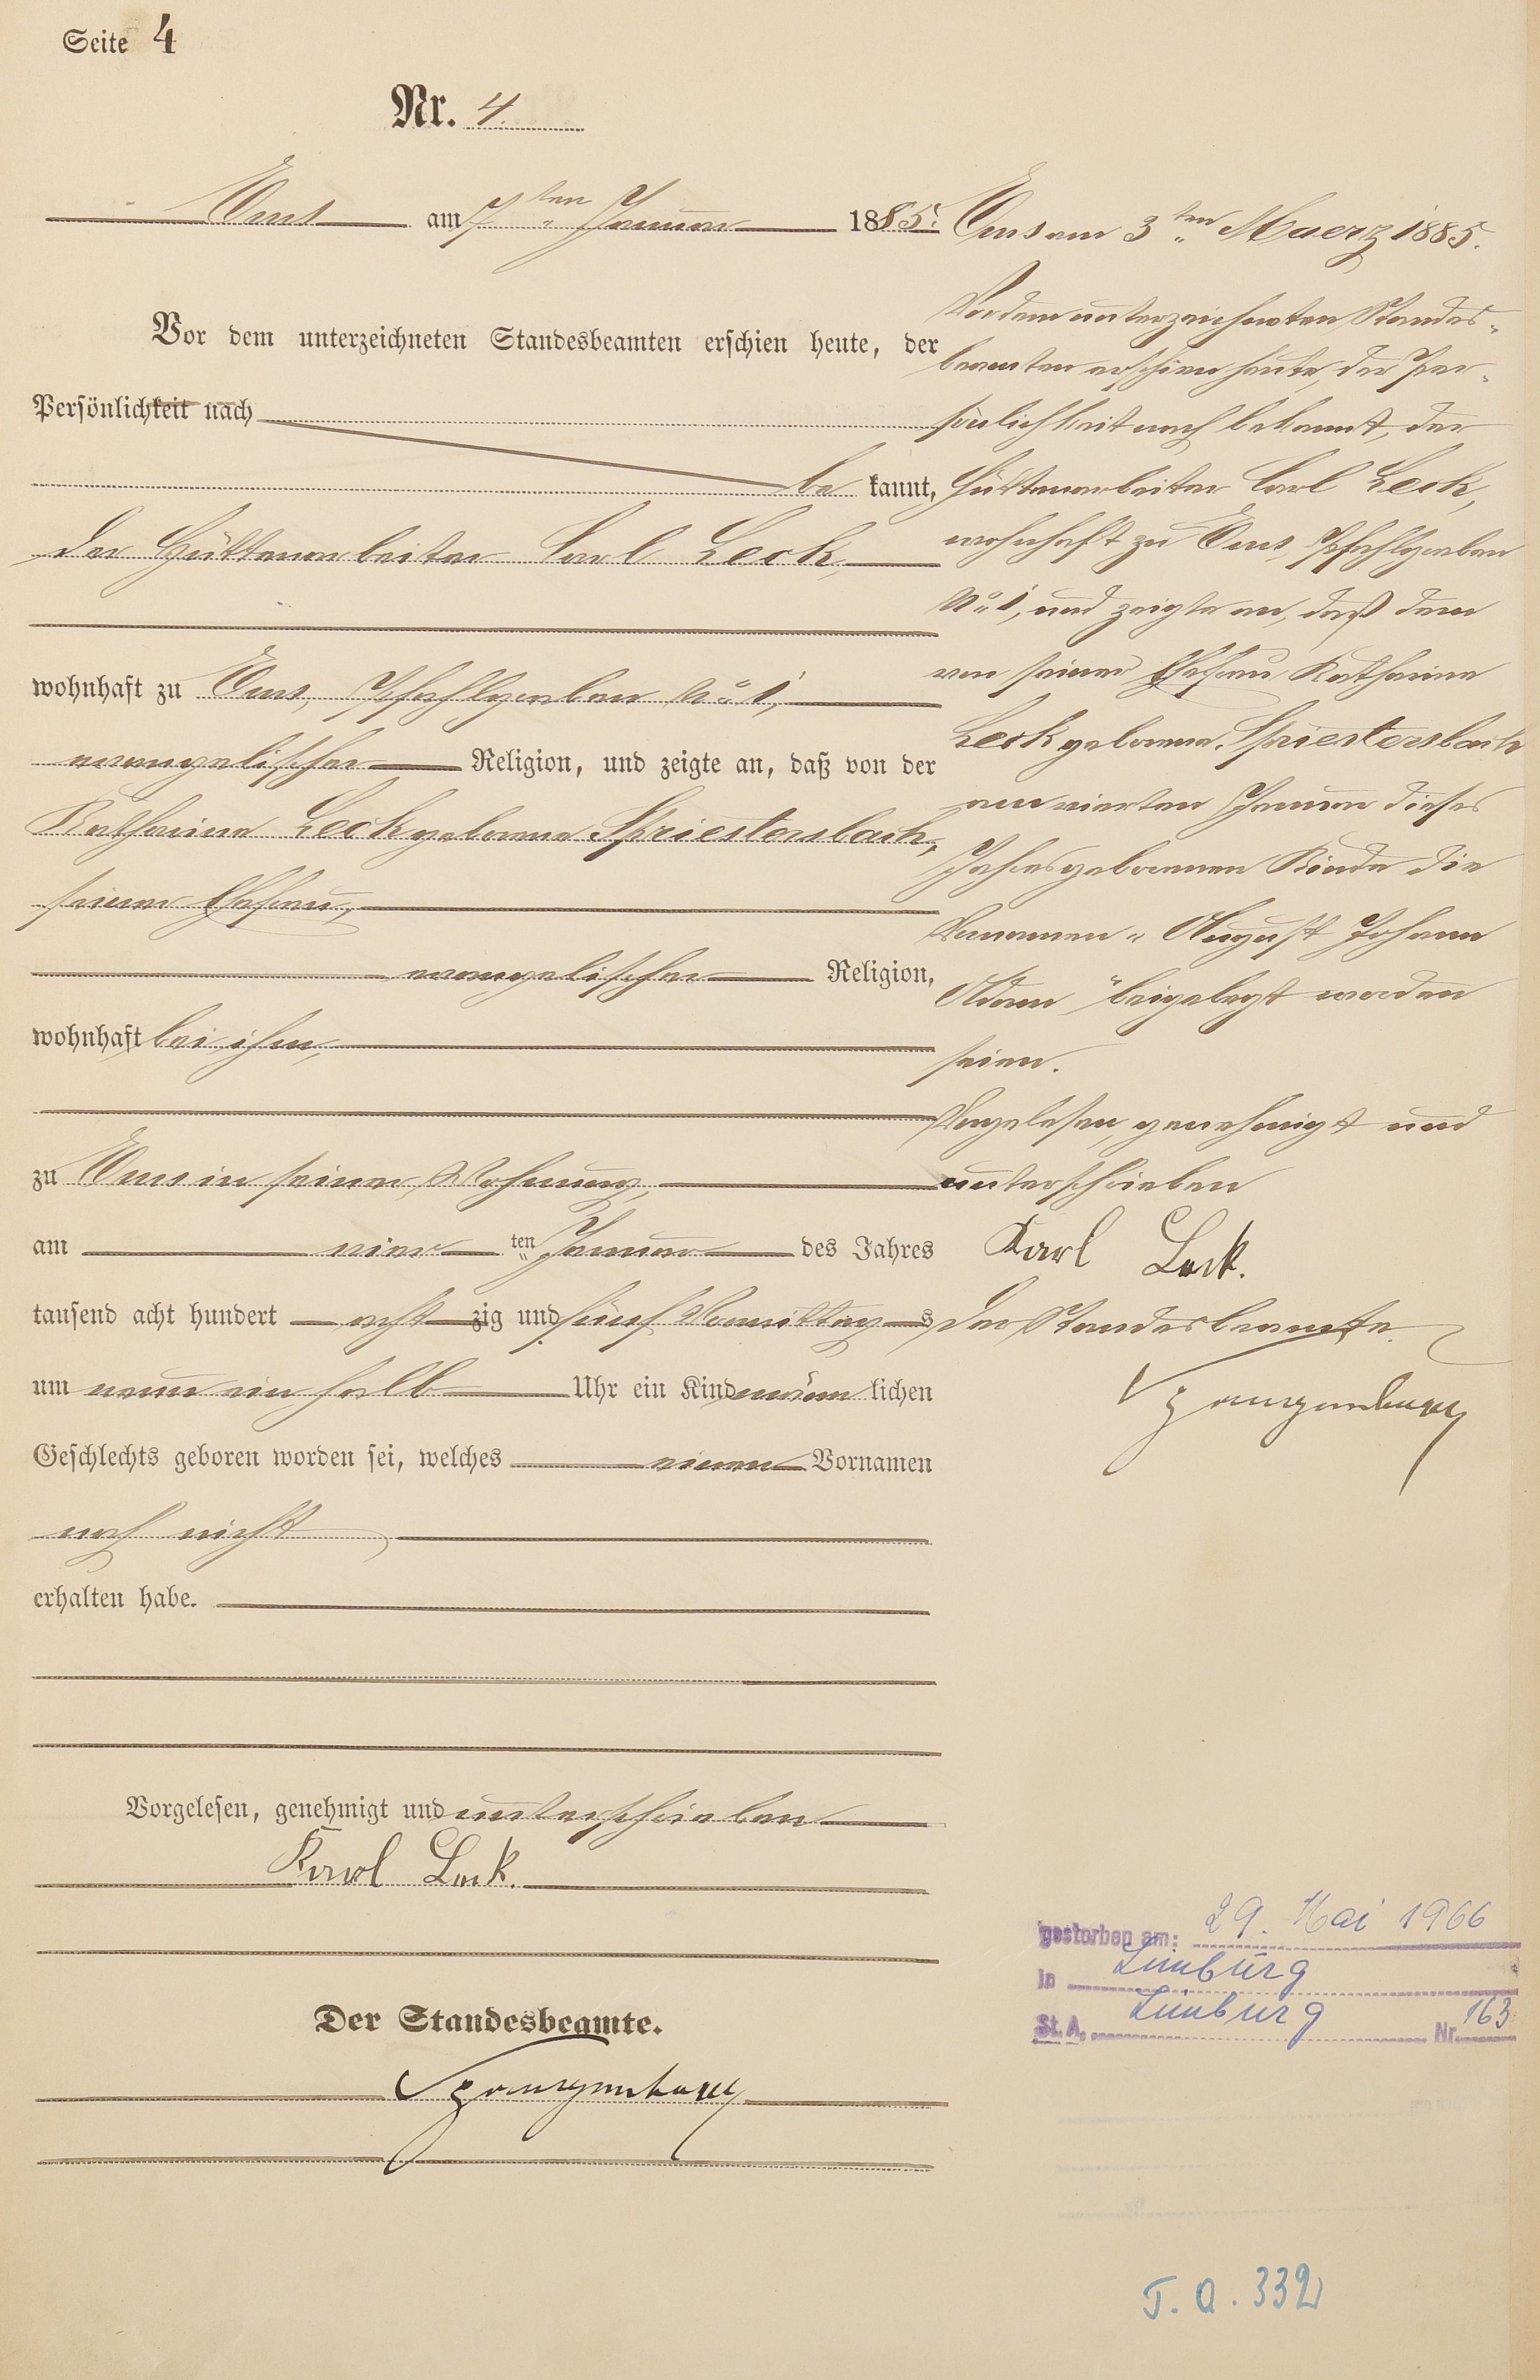 Seite 4
Nr. 4.
Ems am 7ten Januar 1885.
Vor dem unterzeichneten Standesbeamten erschien heute, der
Persönlichkeit nach
be kannt,
der Hüttenarbeiter Carl Leck,
wohnhaft zu Ems, Pfahlgraben No 1,
evangelischer Religion, und zeigte an, daß von der
Katharine Leck geborene Spriestersbach,
seiner Ehefrau,
evangelischer Religion,
wohnhaft bei ihm,
zu Ems in seiner Wohnung,
am vier ten Januar des Jahres
tausend acht hundert acht zig und fünf Vormittag s
um neun ein halb Uhr ein Kind männ lichen
Geschlechts geboren worden sei, welches einen Vornamen
noch nicht
erhalten habe.
Vorgelesen, genehmigt und unterschrieben
Karl Leck.
Der Standesbeamte.
Ems am 3ten Maerz 1885.
Vor dem unterzeichneten Standes-
beamten erschien heute, der Per-
sönlichkeit nach bekannt, der
Hüttenarbeiter Carl Leck,
wohnhaft zu Ems, Pfahlgraben
No 1, und zeigte an, daß dem
von seiner Ehefrau Katharine
Leck geborene Spriestersbach
am vierten Januar dieses
Jahres geborenen Kinde die
Vornamen "August Johann
Adam" beigelegt worden
seien.
Vorgelesen, genehmigt und
unterschrieben
Karl Leck.
Der Standesbeamte.
gestorben am: 29. Mai 1966
in Limburg
St. A. Limburg Nr. 163
T. A. 332